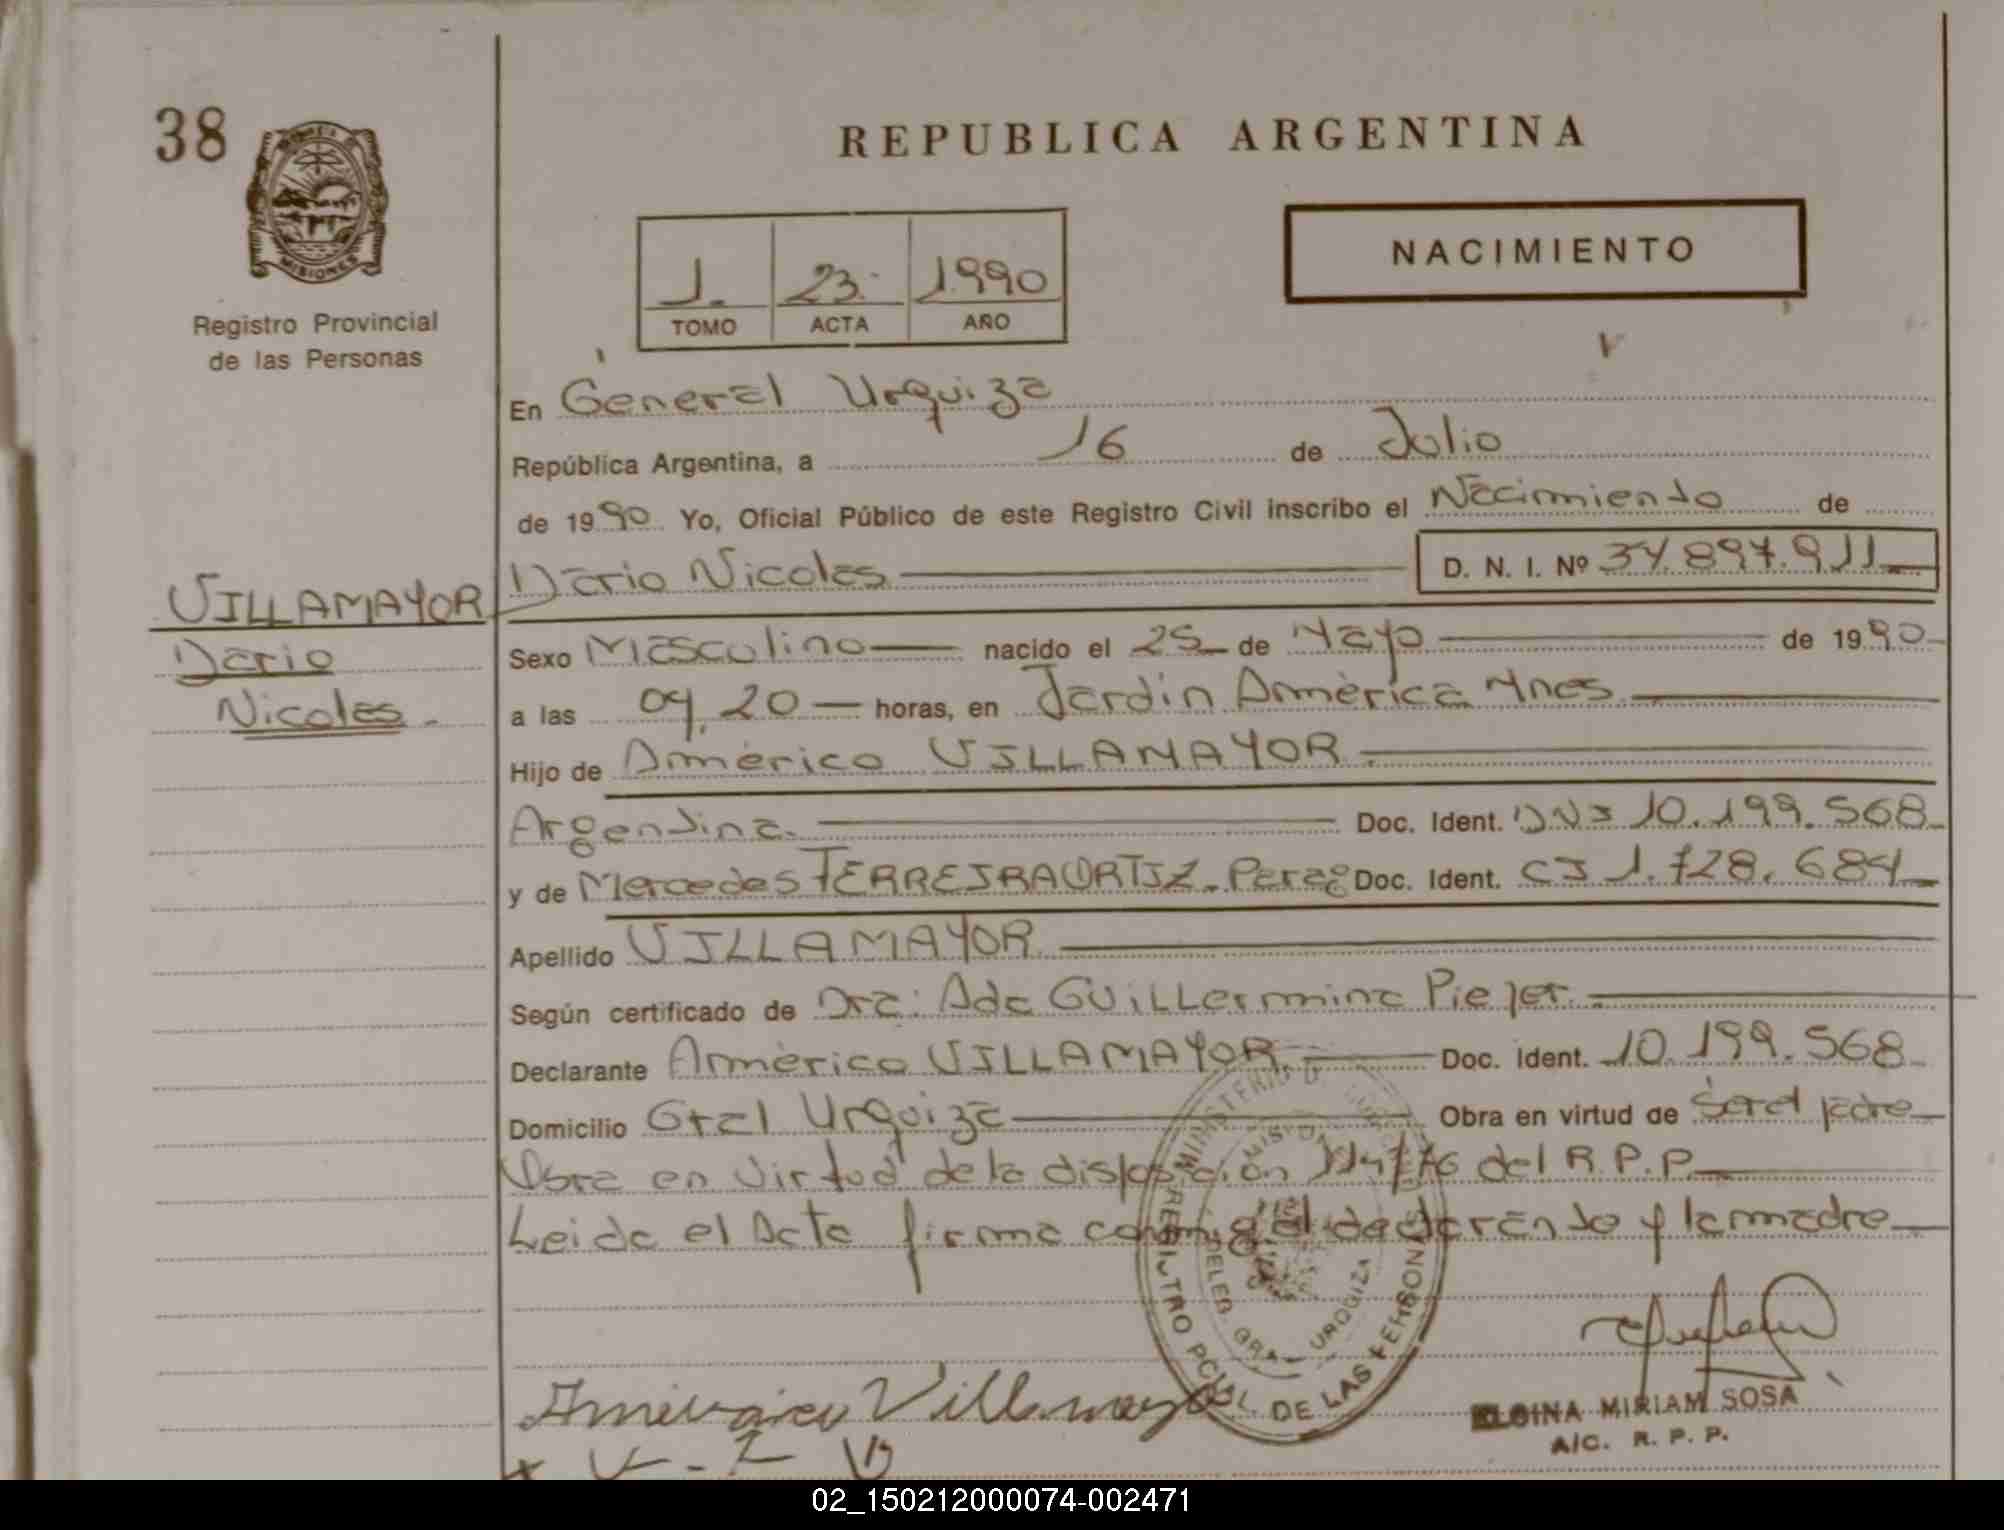 38
REPUBLICA ARGENTINA
NACIMIENTO
MISIONES
Registro Provincial
de las Personas
1. 23. 1.990
TOMO ACTA AÑO
En General Urquiza
República Argentina, a 16 de Julio
de 1990 Yo, Oficial Público de este Registro Civil inscribo el Nacimiento de
Dario Nicolas D. N. I. Nº 34.897.911
VILLAMAYOR
Dario
Nicolas.
Sexo Masculino nacido el 25 de Mayo de 1990
a las 04,20 horas, en Jardin América Mnes.
Hijo de Américo VILLAMAYOR.
Argentina. Doc. Ident. DNI 10.199.568
y de Mercedes FERREIRA ORTIZ. Parag Doc. Ident. CI 1.728.684
Apellido VILLAMAYOR
Según certificado de Dra: Ada Guillermina
Declarante Américo VILLAMAYOR. Doc. Ident. 10.199.568
Domicilio Gral Urquiza Obra en virtud de Ser el padre
Obra en virtud de la disposicion del R.P.P.
Leida el Acta firma conmigo el declarante y la madre
MINISTERIO D. GOB
REGISTRO PCIAL. DE LAS PERSONAS
MISIONES
DELEG. GRAL. URQUIZA
Américo Villamayor
MIRIAM SOSA
A/C. R. P. P.
02_150212000074-002471